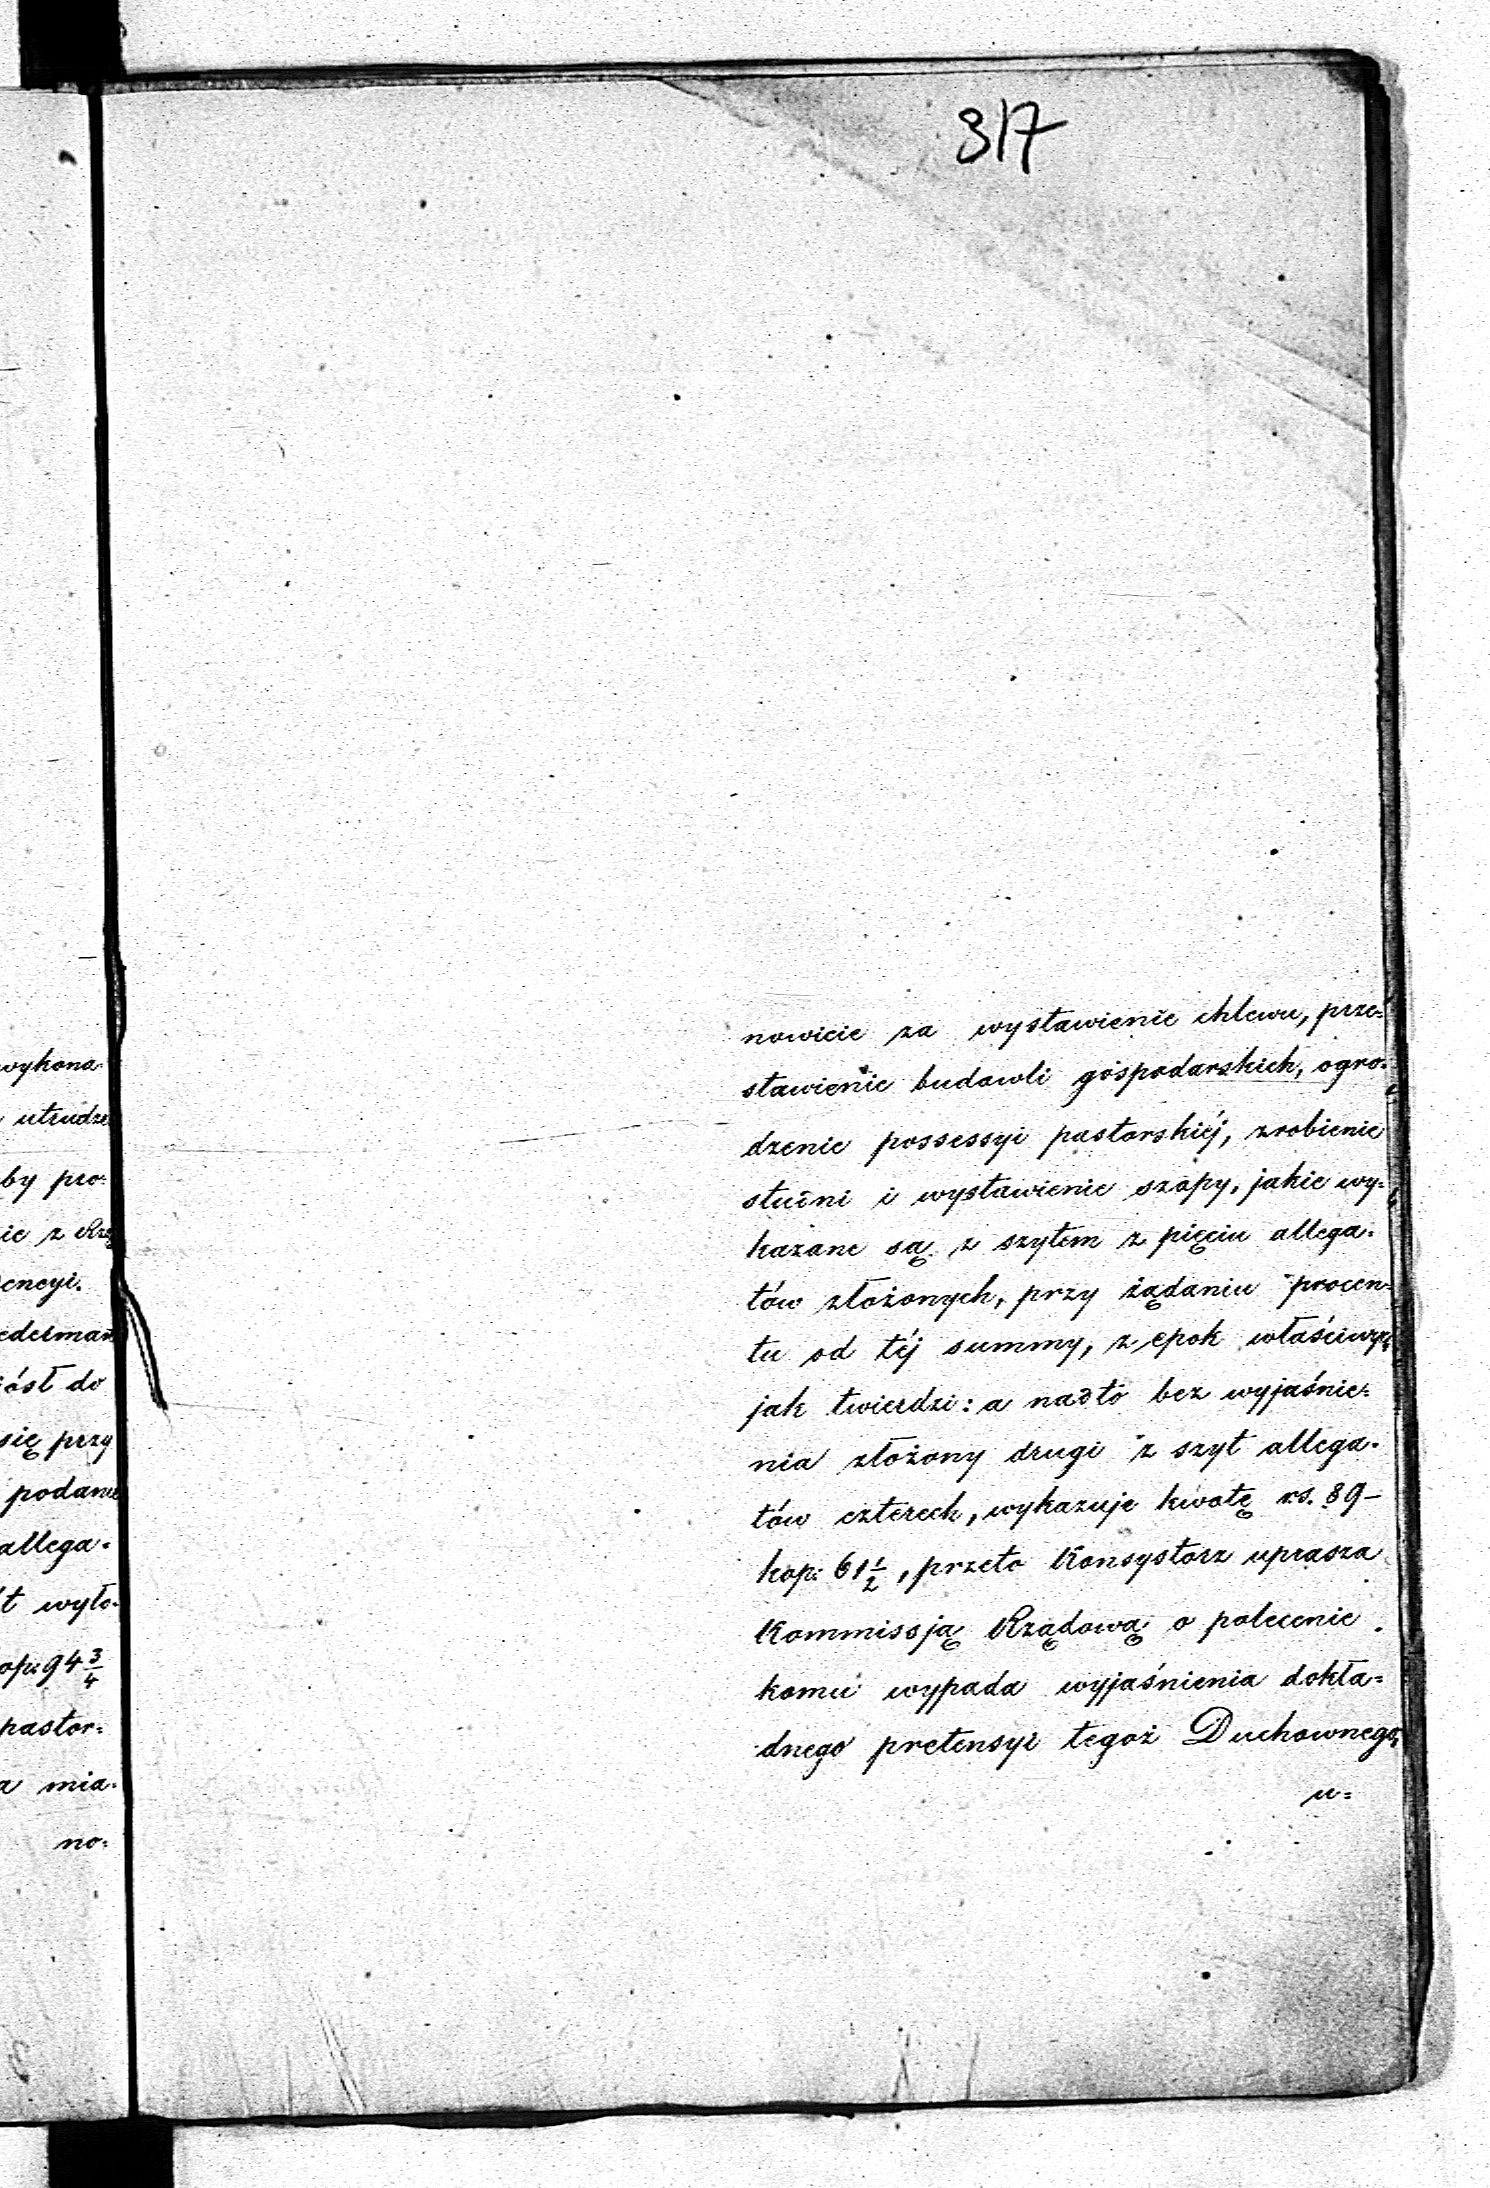 317
wykona-
utrudze
by pro-
ie z Rzą
encyi.
ederman
iósł do
się przy
podanie
allega-
t wyło-
op: 94 3/4
pastor-
a mia-
no-
nowicie za wystawienie chlewu, prze-
stawienie budowli gospodarskich, ogro-
dzenie possessyi pastorskiéj, zrobienie
studni i wystawienie szopy, jakie wy-
kazane są z szytem z pięciu allega-
tów złożonych, przy żądaniu procen-
tu od téj summy, z epok właściwych
jak twierdzi: a nadto bez wyjaśnie-
nia złożony drugi z szyt allega-
tów czterech, wykazuje kwotę rs. 89-
kop: 61 1/2, przeto Konsystorz uprasza
Kommissją Rządową o polecenie
komu wypada wyjaśnienia dokła-
dnego pretensyi tegoż Duchownego,
u-